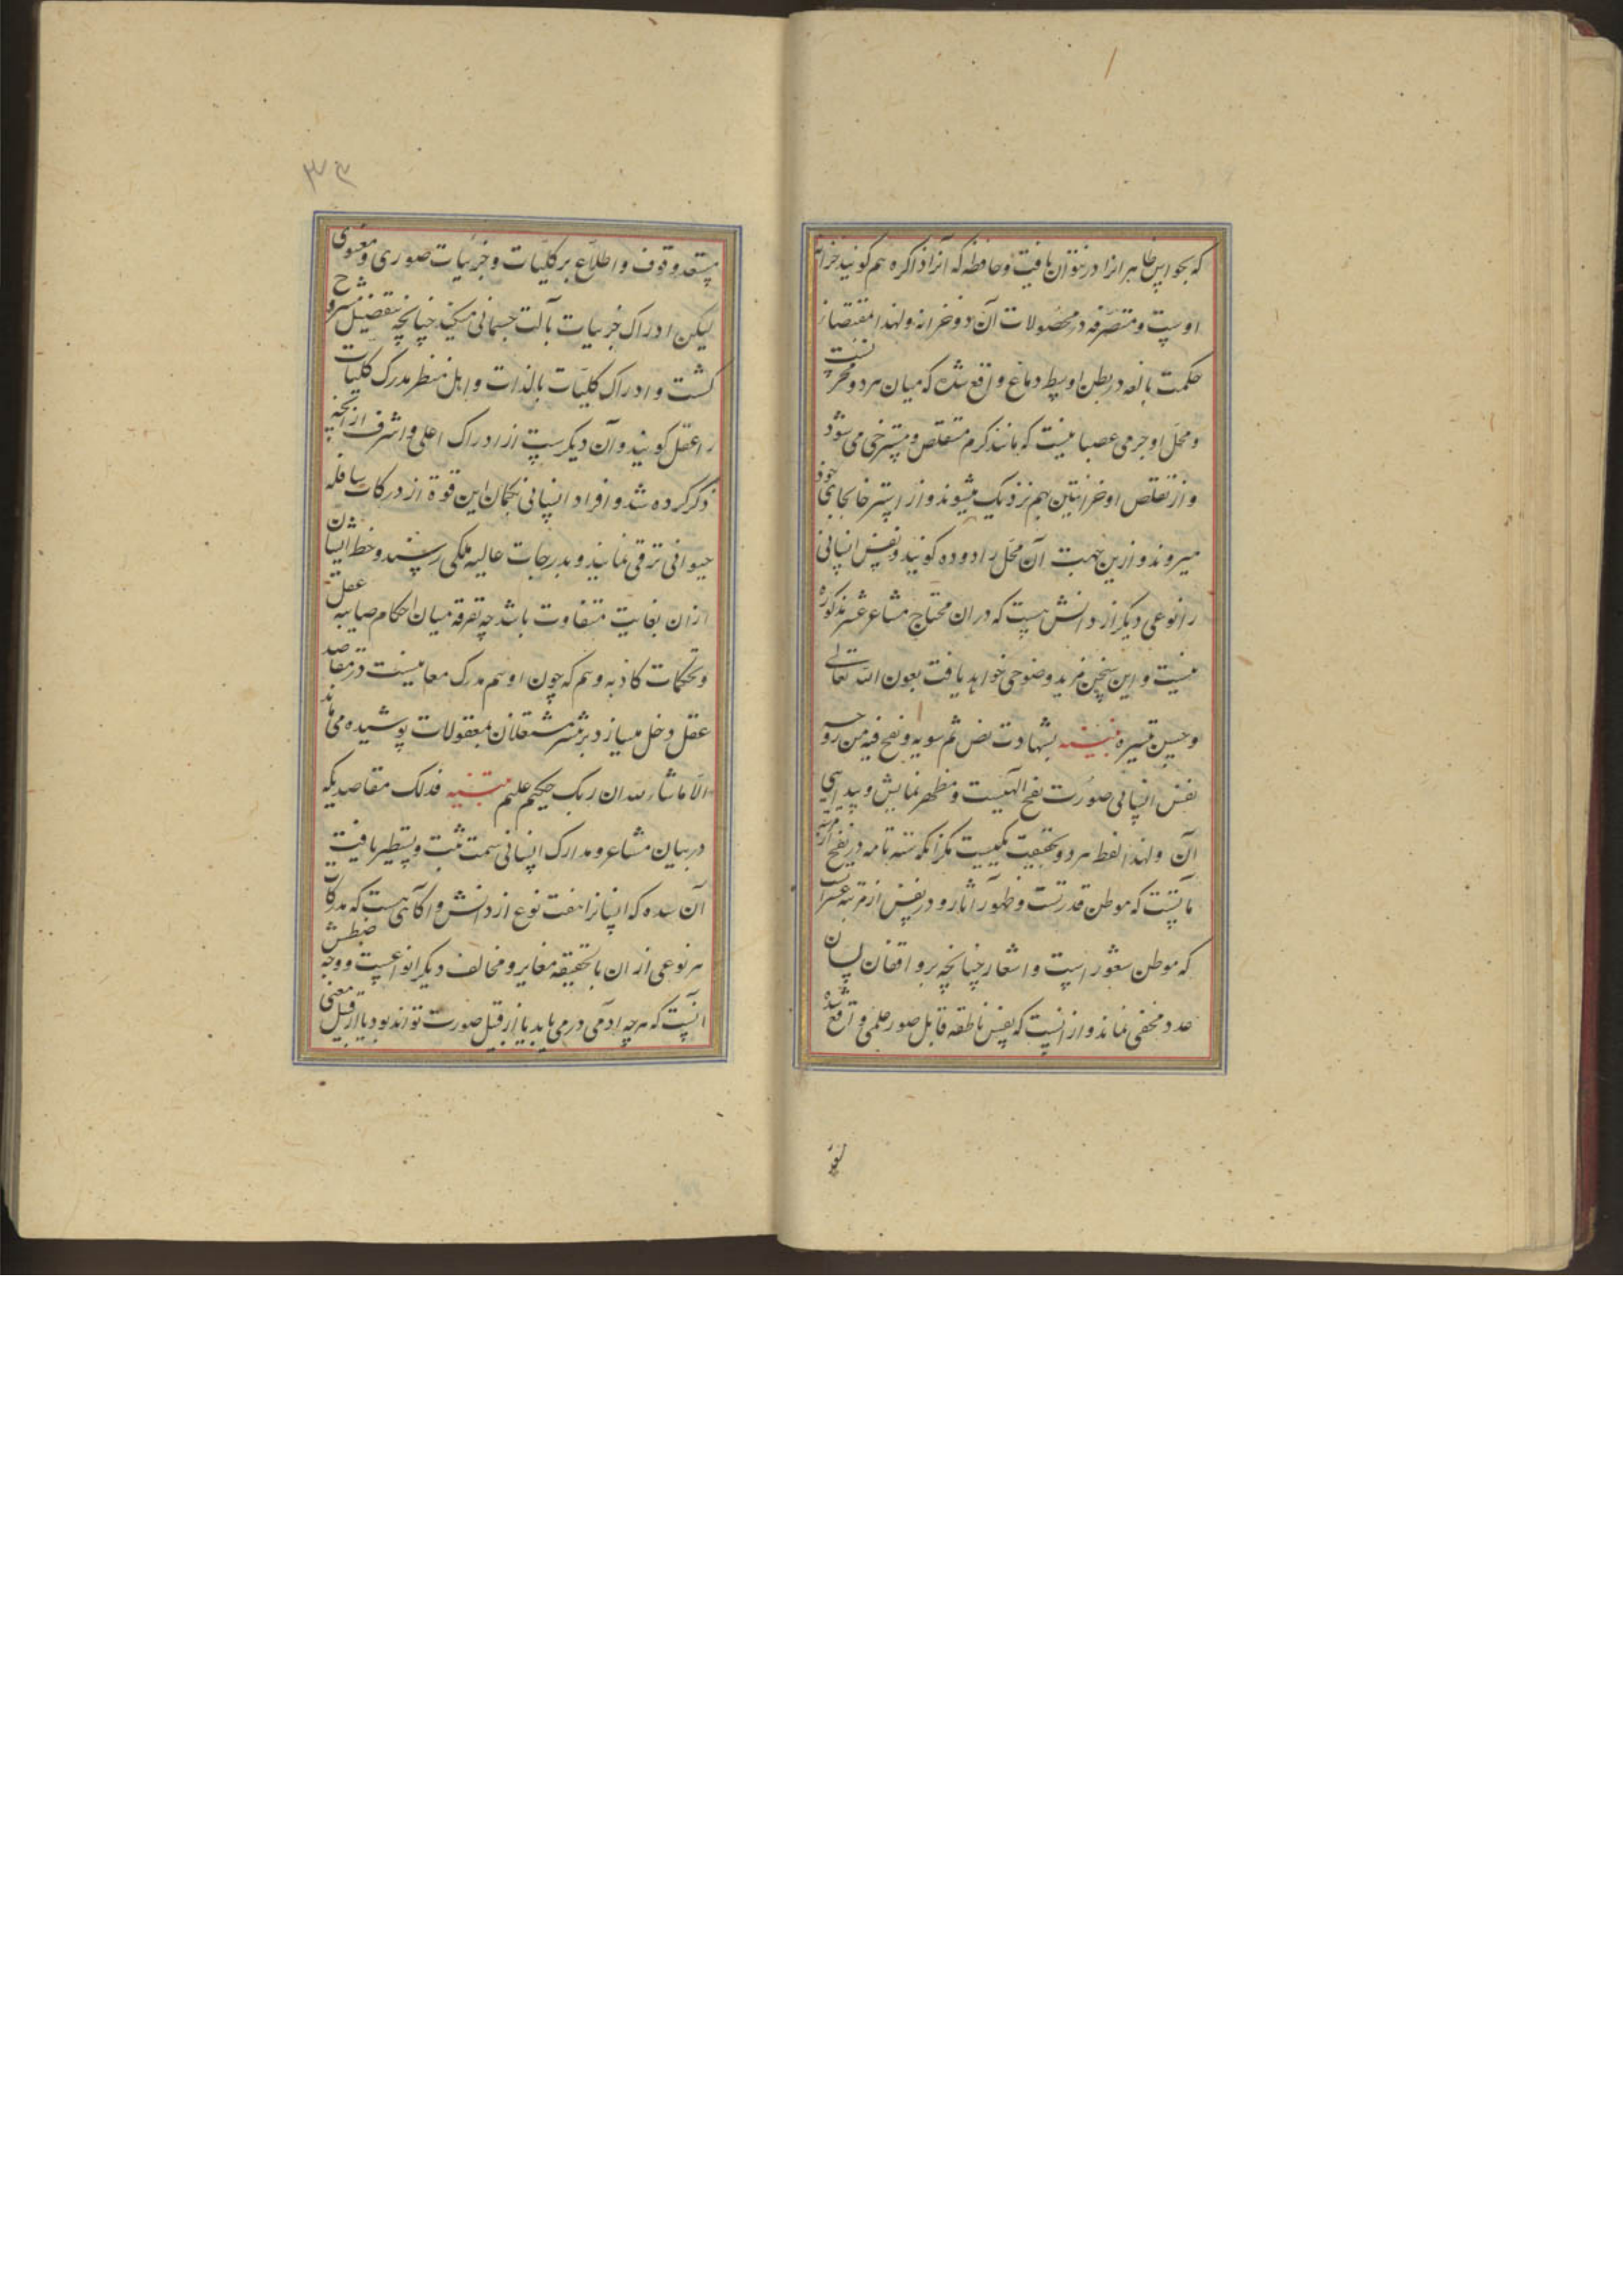 که بحواس ظاهر انرا در نتوان یافت و حافظه که آنرا ذاکره هم کویند خزانه
اوست و متصرفه در محصولات آن دو خزانه و لهذا مقتضای
حکمت بالغه در بطن اوسط دماغ واقع شده که میان هر دو مخزنست
و محل او جرمی عصبانیست که مانند کرم متقلص و مسترخی می شود
و از تقلص او خزانتین بهم نزدیک میشوند و از استرخا بجای خود
میروند و ازین جهت آن محل را دوده کویند و نفس انسانی
را نوعی دیکر از دانش هست که در ان محتاج مشاعر عشر مذکوره
نیست و این سخن مزید وضوحی خواهد یافت بعون الله تعالی
و حسن تیسیره تنبیه بشهادت نص ثم سویه و نفخ فیه من روحه
نفس انسانی صورت نفخ الهیست و مظهر نمایش و پیدایی
آن و لهذا لفظ هر دو بحقیقت یکیست مکر آنکه ستهٔ تامه در نفخ از مرتبه
مآتست که موطن قدرتست و ظهور آثار و در نفس از مرتبه عشرات
که موطن شعور است و اشعار چنانچه بر واقفان لسان
عدد مخفی نماند و از انست که نفس ناطقه قابل صور علمی واقع شده
۳۴
مستعد وقوف و اطلاع بر کلیات و جزئیات صوری و معنوی
لیکن ادراک جزییات بآلت جسمانی میکند چنانچه بتفصیل مشروح
کشت و ادراک کلیات بالذات و اهل نظر مدرک کلیات
را عقل کویند و آن دیکرست از ادراک اعلی و اشرف از آنچه
ذکر کرده شد و افراد انسانی بحکمان این قوة از درکات سافله
حیوانی ترقی نمایند و بدرجات عالیه ملکی رسند و حظ ایشان
ازان بغایت متفاوت باشد چه تفرقه میان احکام صایبه عقل
و تحکمات کاذبه وهم که چون او هم مدرک معانیست در مقاصد
عقل دخل میسازد بر بیشتر مشتغلان بمعقولات پوشیده می ماند
الا ما شاء الله ان ربک حکیم علیم تنبیه فذلک مقاصدیکه
در بیان مشاعر و مدارک انسانی سمت ثبت و تسطیر یافت
آن شده که انسانرا هفت نوع از دانش و اکاهی هست که مدرکات
هر نوعی از ان بالحقیقه مغایر و مخالف دیکر انواعست و وجه ضبطش
انست که هرچه آدمی در می یابد یا از قبیل صورت تواند بود یا از قبیل معنی